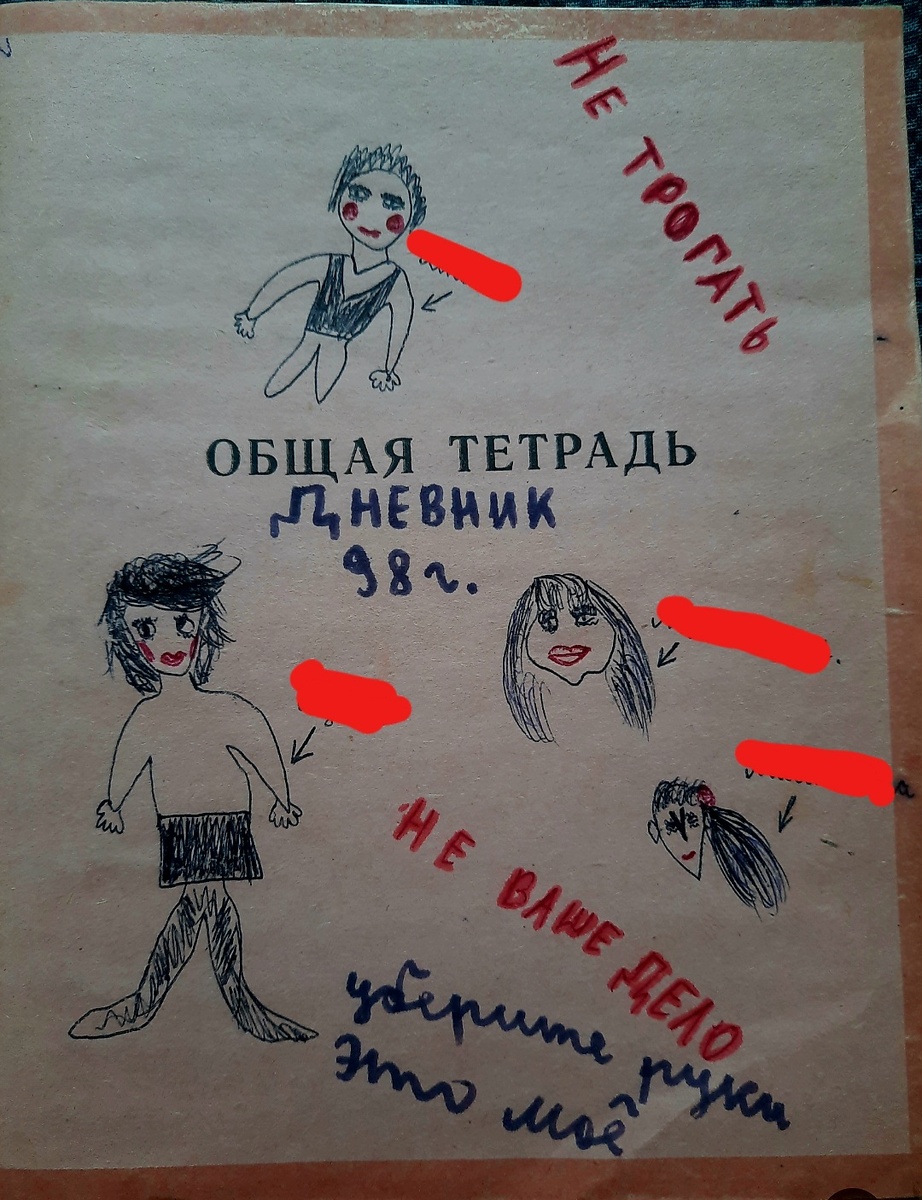 НЕ ТРОГАТЬ
ОБЩАЯ ТЕТРАДЬ
ДНЕВНИК
98 г.
НЕ ВАШЕ ДЕЛО
уберите руки
Это моё